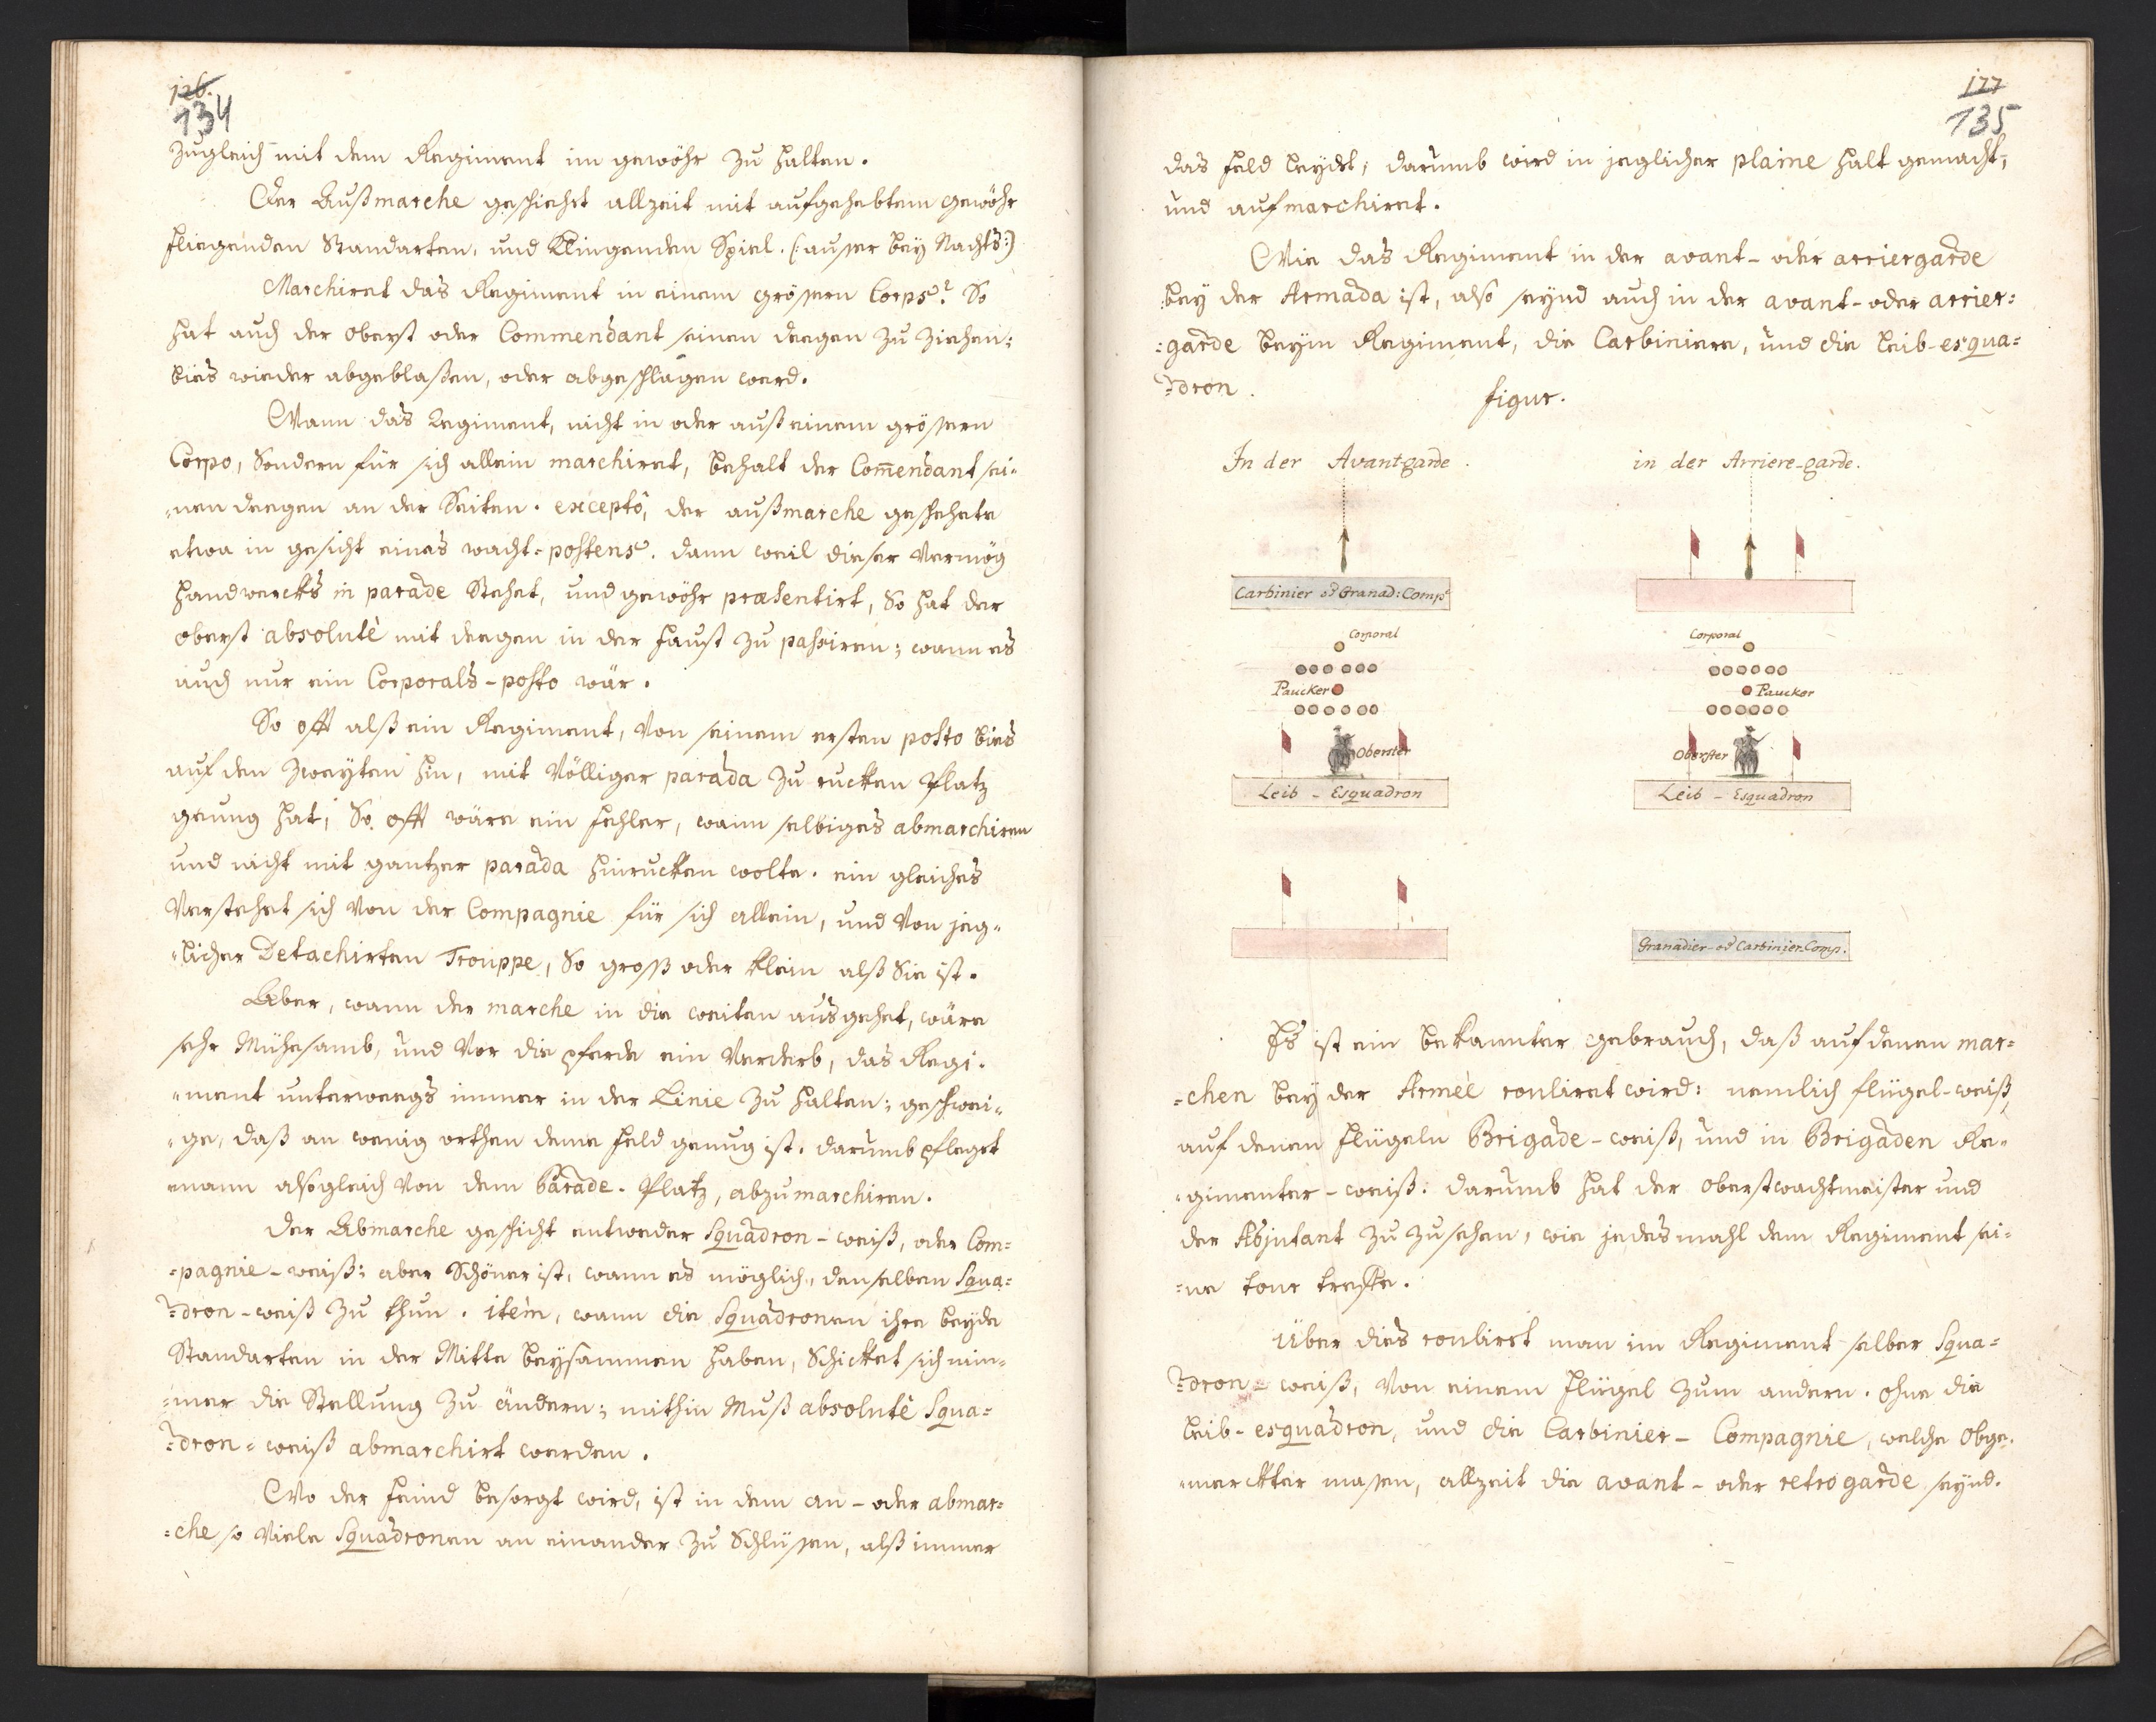 126.
134
zugleich mit dem Regiment im gewöhr zu halten.
Der Außmarche geschiehet allzeit mit aufgehebtem gewöhr
fliegenden Standarten, und Klingenden Spiel. (: ausser bey Nachts :)
Marchiret das Regiment in einem grössern Corps? So
hat auch der oberst oder Commendant seinen deegen zu ziehen;
bies wieder abgeblaßen, oder abgeschlagen werd.
Wann das Regiment, nicht in oder auß einem grössern
Corpo, Sondern für sich allein marchiret, behalt der Com̄endant sei-
-nen deegen an der Seiten. exceptô, der außmarche geschehete
etwa in gesicht eines wacht-postens. dann weil dieser Vermög
handwercks in parade Stehet, und gewöhr præsentirt, So hat der
oberst absolutè mit deegen in der faust zu paßiren; wann es
auch nur ein Corporals-posto wär.
So offt alß ein Regiment, Von seinem ersten posto bies
auf den zweyten hin, mit Völliger parada zu rucken platz
genung hat; So offt wäre ein fehler, wann selbiges abmarchiren
und nicht mit gantzer parada hinrucken wolte. ein gleiches
Verstehet sich Von der Compagnie für sich allein, und Von jeg-
-licher Detachirten Trouppe, So groß oder klein alß Sie ist.
Aber, wann der marche in die weiten ausgehet, wäre
sehr Mühesamb, und Vor die pferde ein Verderb, das Regi-
-ment unterweegs immer in der Linie zu halten; geschwei-
-ge, daß an wenig orthen deme feld genug ist. darumb pfleget
mann alsogleich Von dem Parade-Platz, abzumarchiren.
Der Abmarche geschicht entweder Squadron-weiß, oder Com=
=pagnie-weiß: aber Schöner ist, wann es möglich, denselben Squa=
=dron-weiß zu thun. itèm, wann die Squadronen ihre beyde
Standarten in der Mitte beysammen haben, Schicket sich nim-
=mer die Stellung zu ändern; mithin Muß absolutè Squa=
=dron=weiß abmarchirt werden.
Wo der feind besorgt wird, ist in dem an- oder abmar=
=che so Viele Squadronen an einander zu Schlüssen, alß immer
127
135
das feld leydet; darumb wird in jeglicher plaine halt gemacht,
und aufmarchiret.
Wie das Regiment in der avant- oder arriergarde
bey der Armada ist, also seynd auch in der avant- oder arrier=
=garde beym Regiment, die Carbiniere, und die Leib-esqua=
=dron.
figur.
In der Avantgarde.
in der Arriere-garde.
Carbinier od Granad: Comp:
Corporal
Corporal
Paucker
Paucker
Oberster
Oberster
Leib - Esquadron
Leib - Esquadron
Granadier- od Carbinier-Comp.
Es ist ein bekannter gebrauch, daß auf denen mar=
=chen bey der Armèe rouliret wird: nemlich flügel-weiß,
auf denen flügeln Brigade-weiß, und in Brigaden Re-
-gimenter-weiß: darumb hat der oberstwachtmeister und
der Adjutant zu zusehen, wie jedesmahl dem Regiment sei-
=ne tour treffe.
Über dies roulirct man im Regiment selber Squa=
=dron-weiß, Von einem flügel zum andern. ohne die
Leib-esquadron, und die Carbinier- Compagnie, welche obge-
-merckter massen, allzeit die avant- oder retrogarde seynd.